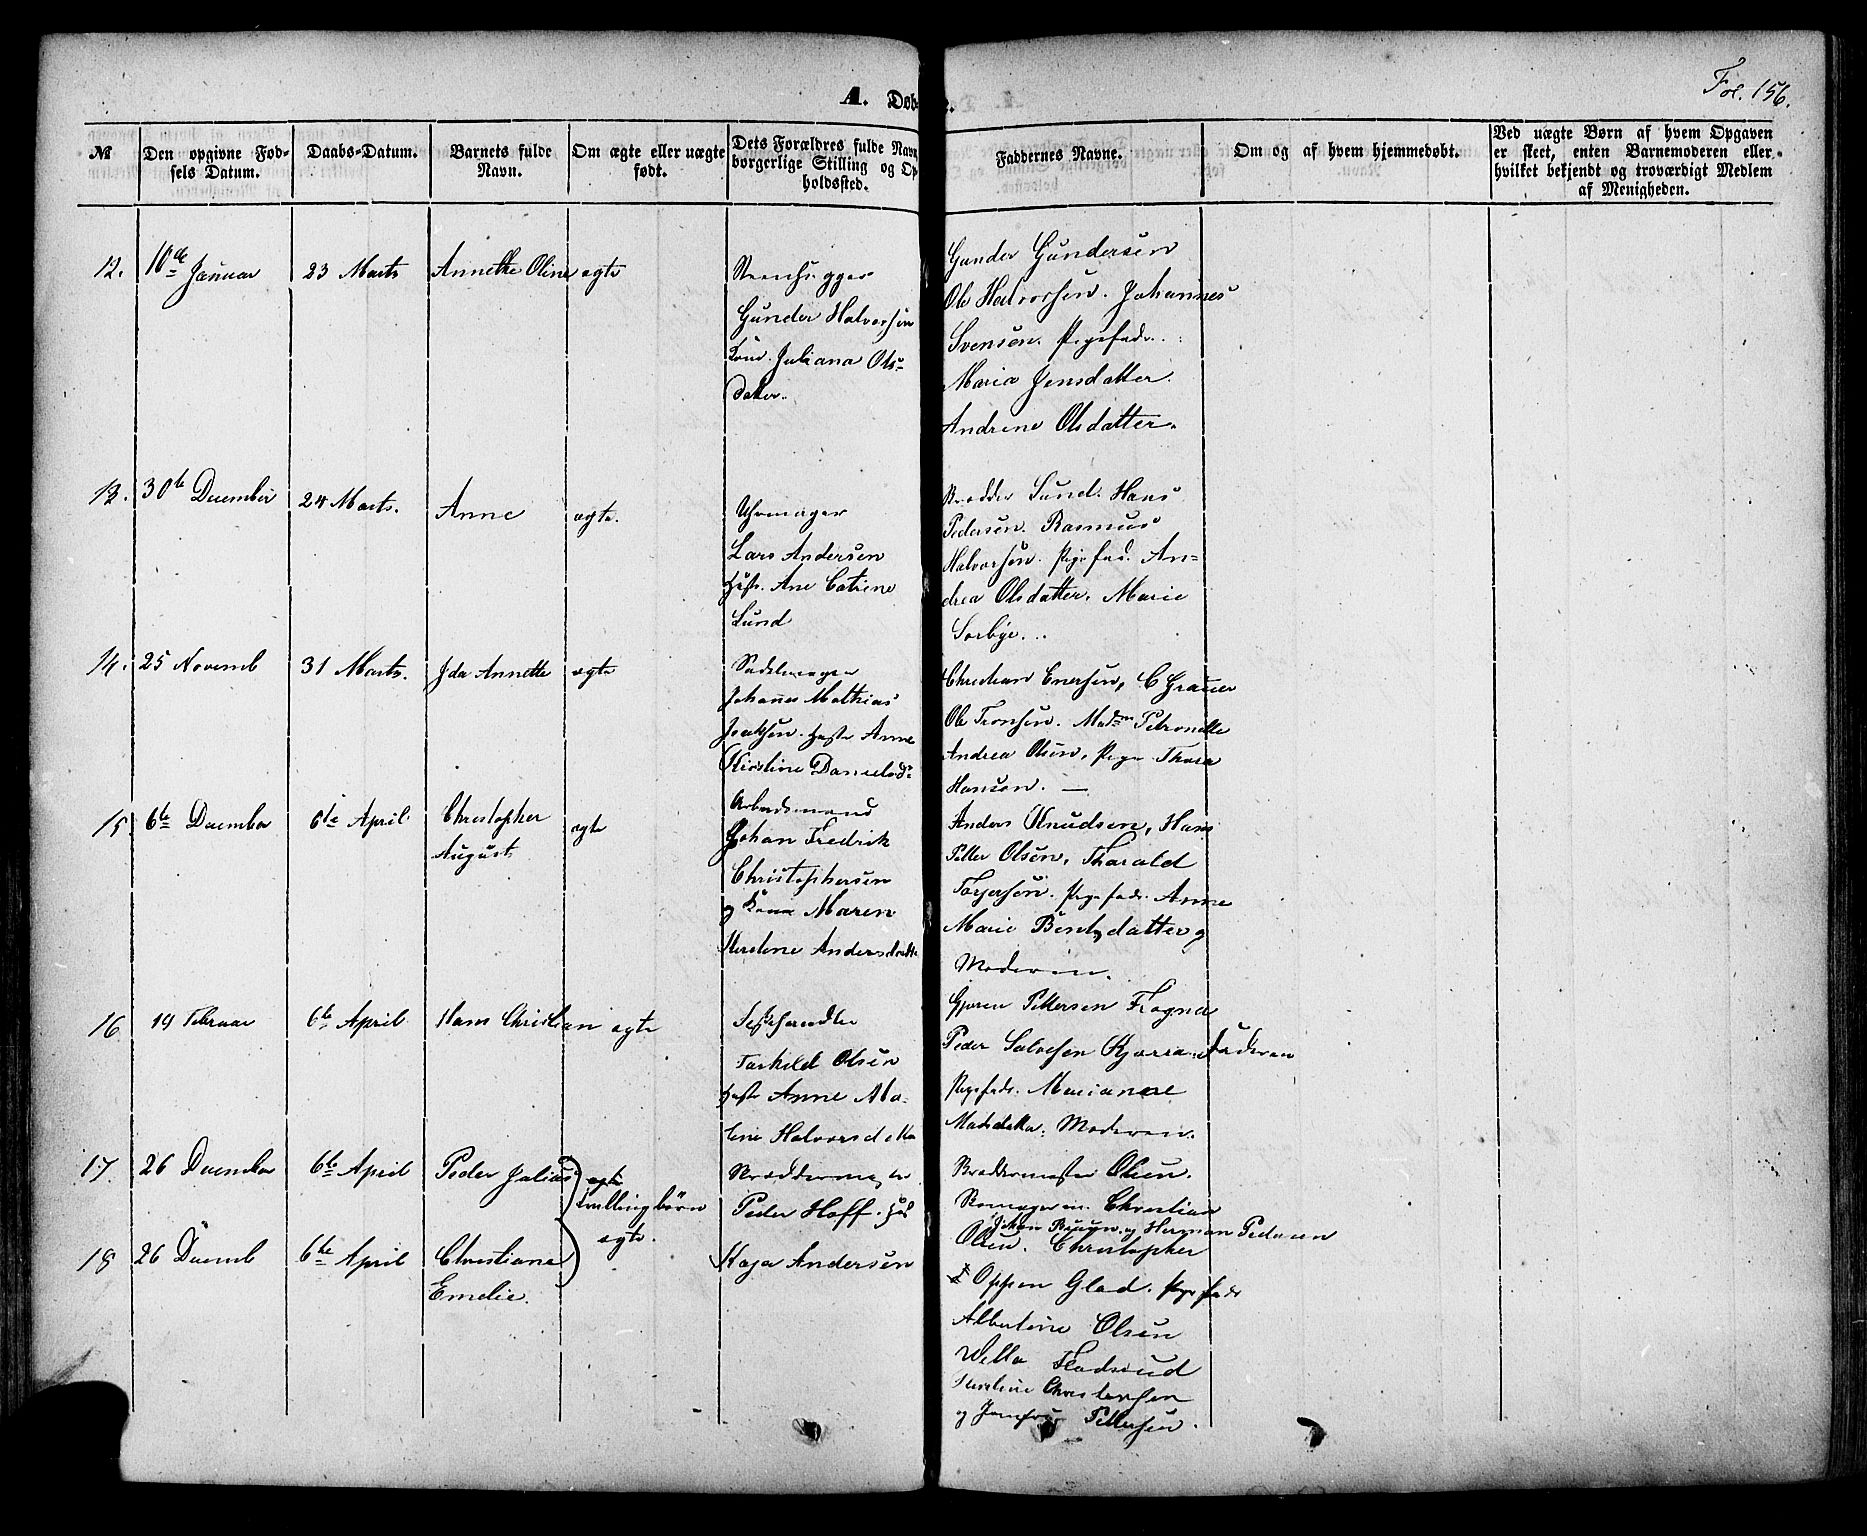 Fol. 156.
A. Døb- e.
№
Den opgivne Fød-
sels Datum.
Daabs-Datum.
Barnets fulde
Navn.
Om ægte eller uægte
født.
Dets Forældres fulde Navn
borgerlige Stilling og Op
holdssted.
Faddernes Navne.
Om og af hvem hjemmedøbt.
Ved uægte Børn af hvem Opgaven
er skeet, enten Barnemoderen eller
hvilket bekjendt og troværdigt Medlem
af Menigheden.
12.
10de Januar
23 Marts
Annethe Oline
ægte
Steenhugger
Gunder Halvorsen
Kone. Juliana Ols-
datter.
Gunder Gundersen
Ole Halvorsen. Johannes
Svensen. Pigefadr.
Maria Jensdatter.
Andrine Olsdatter.
13.
30te December
24 Marts.
Anne
ægte.
Uhrmager
Lars Andersen
Hust. Ane Catrine
Lund
Lund. Hans
Pedersen. Rasmus
Halvorsen. Pigefad. An-
drea Olsdatter. Marie
Sorbye.
14.
25 Novemb
31 Marts.
Ida Annette
ægte
Sadelmager
Johanes Mathias
Hustr Anne
Kirstine Danielsd
Christian Enersen, C Grauer
Ole Tronsen. Madm Petronelle
Andrea Olsen, Pige Thora
Hansen. —
15
6te December
6te April.
Christopher
August
ægte
Arbeidsmand
Johan Fredrik
Christophersen
og Kone Maren
Kirstine Andersdatte
Anders Knudsen, Hans
Petter Olsen, Tharald
Torjersen. Pigefadr. Anne
Marie Bentsdatter og
Moderen.
16
14 Februar
6te April
Hans Christian
ægte
Torkild Olsen
Hustr Anne Ma-
lene Halvorsdatter
Gjoren Pettersen Fragna
Peder Salvesen Kjærra. Faderen
Pigefadr. Mariane
Madsdatter. Moderen.
17.
26 December
6te April
Peder Julius
ægte
Tvillingbørn
Skræddermester
Peder Hoff. Hus
18
26 Decemb
6te April
Christiane
Emelie.
ægte.
Kaja Andersen
Skræddermester Olsen.
Skomagersv. Christian
Johan Bruun. og Herman Pedersen
Olsen. Christopher
Oppen Glad. Pigefadr
Albertine Olsen
Wella Fladsrud
Kirstine Christensen
og Jomfru Pettersen.